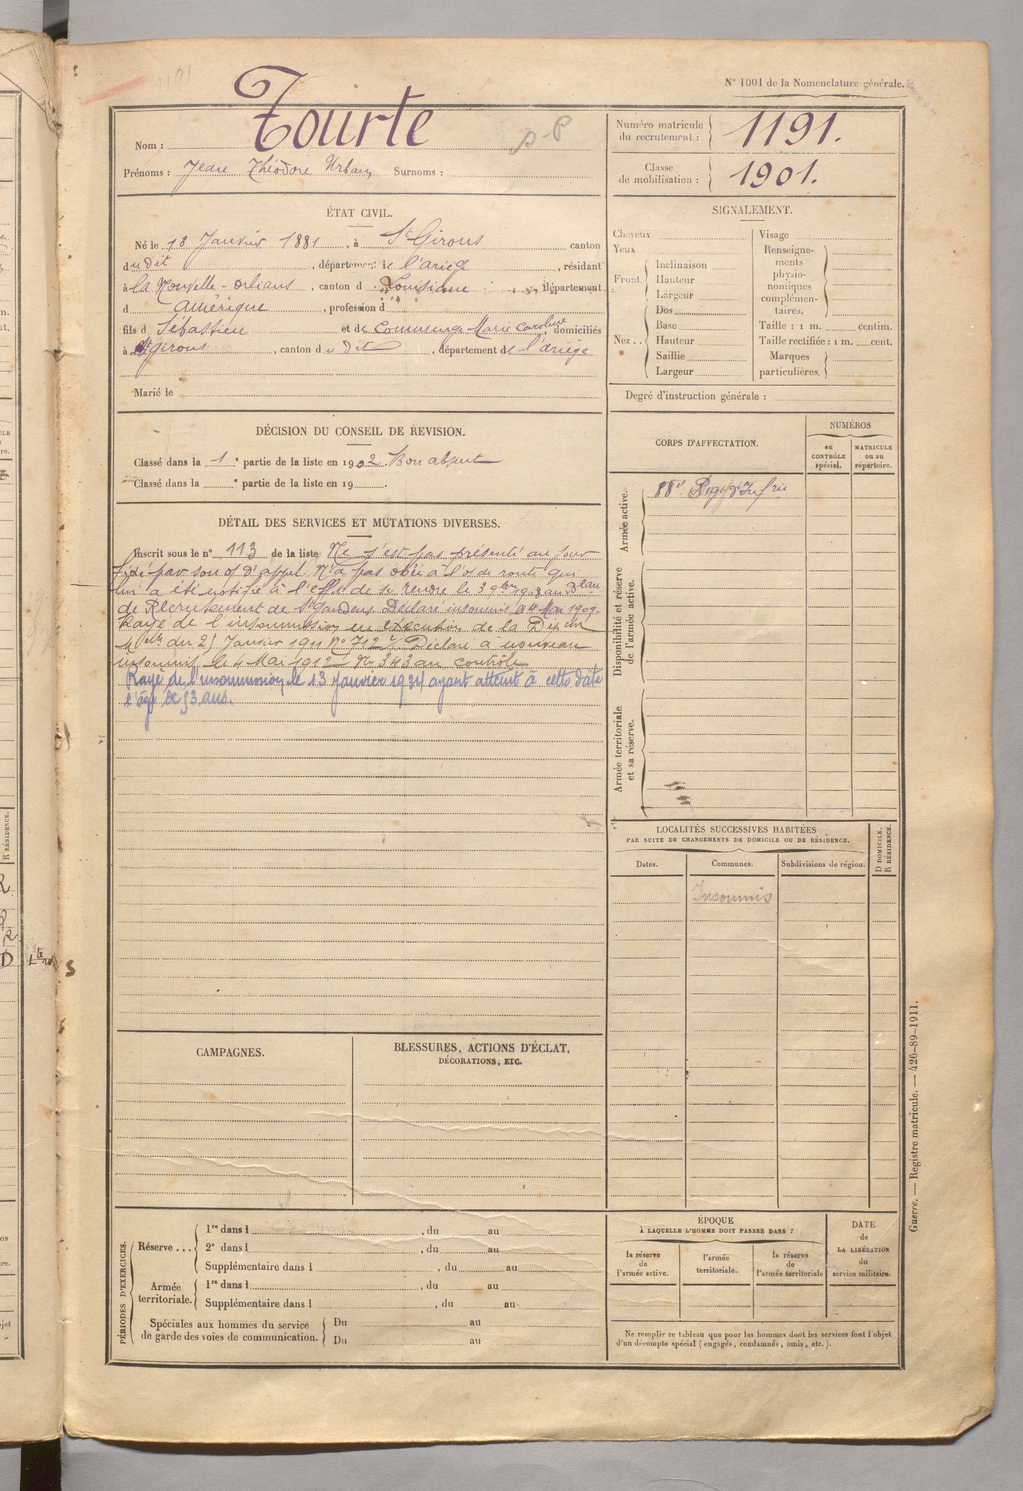 N° 1001 de la Nomenclature générale.
Nom : Tourte
Prénoms : Jean Théodore Urbain Surnoms :
Numéro matricule du recrutement : 1191.
Classe de mobilisation : 1901.
ÉTAT CIVIL.
Né le 18 Janvier 1881, à St Girons canton
du dit, département de l'ariège, résidant
à la Nouvelle-orléans, canton d Louisiane, département
d amérique, profession d
fils d Sébastien et de Commenge Marie Caroline, domiciliés
à St girons, canton du dit, département de l'ariège
Marié le
SIGNALEMENT.
Cheveux
Yeux
Front. Inclinaison
Hauteur
Largeur
Nez.. Dos
Base
Hauteur
Saillie
Largeur
Visage
Renseignements physionomiques complémentaires.
Taille : 1 m. centim.
Taille rectifiée : 1 m. cent.
Marques particulières.
Degré d'instruction générale :
DÉCISION DU CONSEIL DE REVISION.
Classé dans la 1e partie de la liste en 1902. Bon absent
Classé dans la e partie de la liste en 19 .
DÉTAIL DES SERVICES ET MUTATIONS DIVERSES.
Inscrit sous le n° 113 de la liste Ne s'est pas présenté au jour
fixé par son of d'appel. N'a pas obéi à l'o de route qui
lui a été notifié à l'effet de se rendre le 3 9bre 1908 au Beau
de Recrutement de St Gaudens Déclaré insoumis le 4 Mai 1909.
Rayé de l'insoumission en exécution de la Dépêche
Melle du 21 Janvier 1911 No 712 Déclaré à nouveau
insoumis le 4 Mai 1912 No 343 au contrôle
Rayé de l'insoumission, le 13 Janvier 1934 ayant atteint à cette date
l'âge de 53 ans.
CORPS D'AFFECTATION.
NUMÉROS
au CONTRÔLE spécial.
MATRICULE ou au répertoire.
Armée active.
88e Regt d'Infrie
Disponibilité et réserve de l'armée active.
Armée territoriale et sa réserve.
LOCALITÉS SUCCESSIVES HABITÉES
PAR SUITE DE CHANGEMENTS DE DOMICILE OU DE RÉSIDENCE.
Dates. Communes. Subdivisions de région. D DOMICILE. R RÉSIDENCE.
Insoumis
CAMPAGNES.
BLESSURES, ACTIONS D'ÉCLAT,
DÉCORATIONS, ETC.
PÉRIODES D'EXERCICES.
Réserve ... 1re dans l , du au
2e dans l , du au
Supplémentaire dans l , du au
Armée territoriale. 1re dans l , du au
Supplémentaire dans l , du au
Spéciales aux hommes du service de garde des voies de communication. Du au
Du au
ÉPOQUE
À LAQUELLE L'HOMME DOIT PASSER DANS :
la réserve de l'armée active.
l'armée territoriale.
la réserve de l'armée territoriale
DATE de LA LIBÉRATION du service militaire.
Ne remplir ce tableau que pour les hommes dont les services font l'objet
d'un décompte spécial (engagés, condamnés, omis, etc.).
Guerre. — Registre matricule. — 426-89-1911.